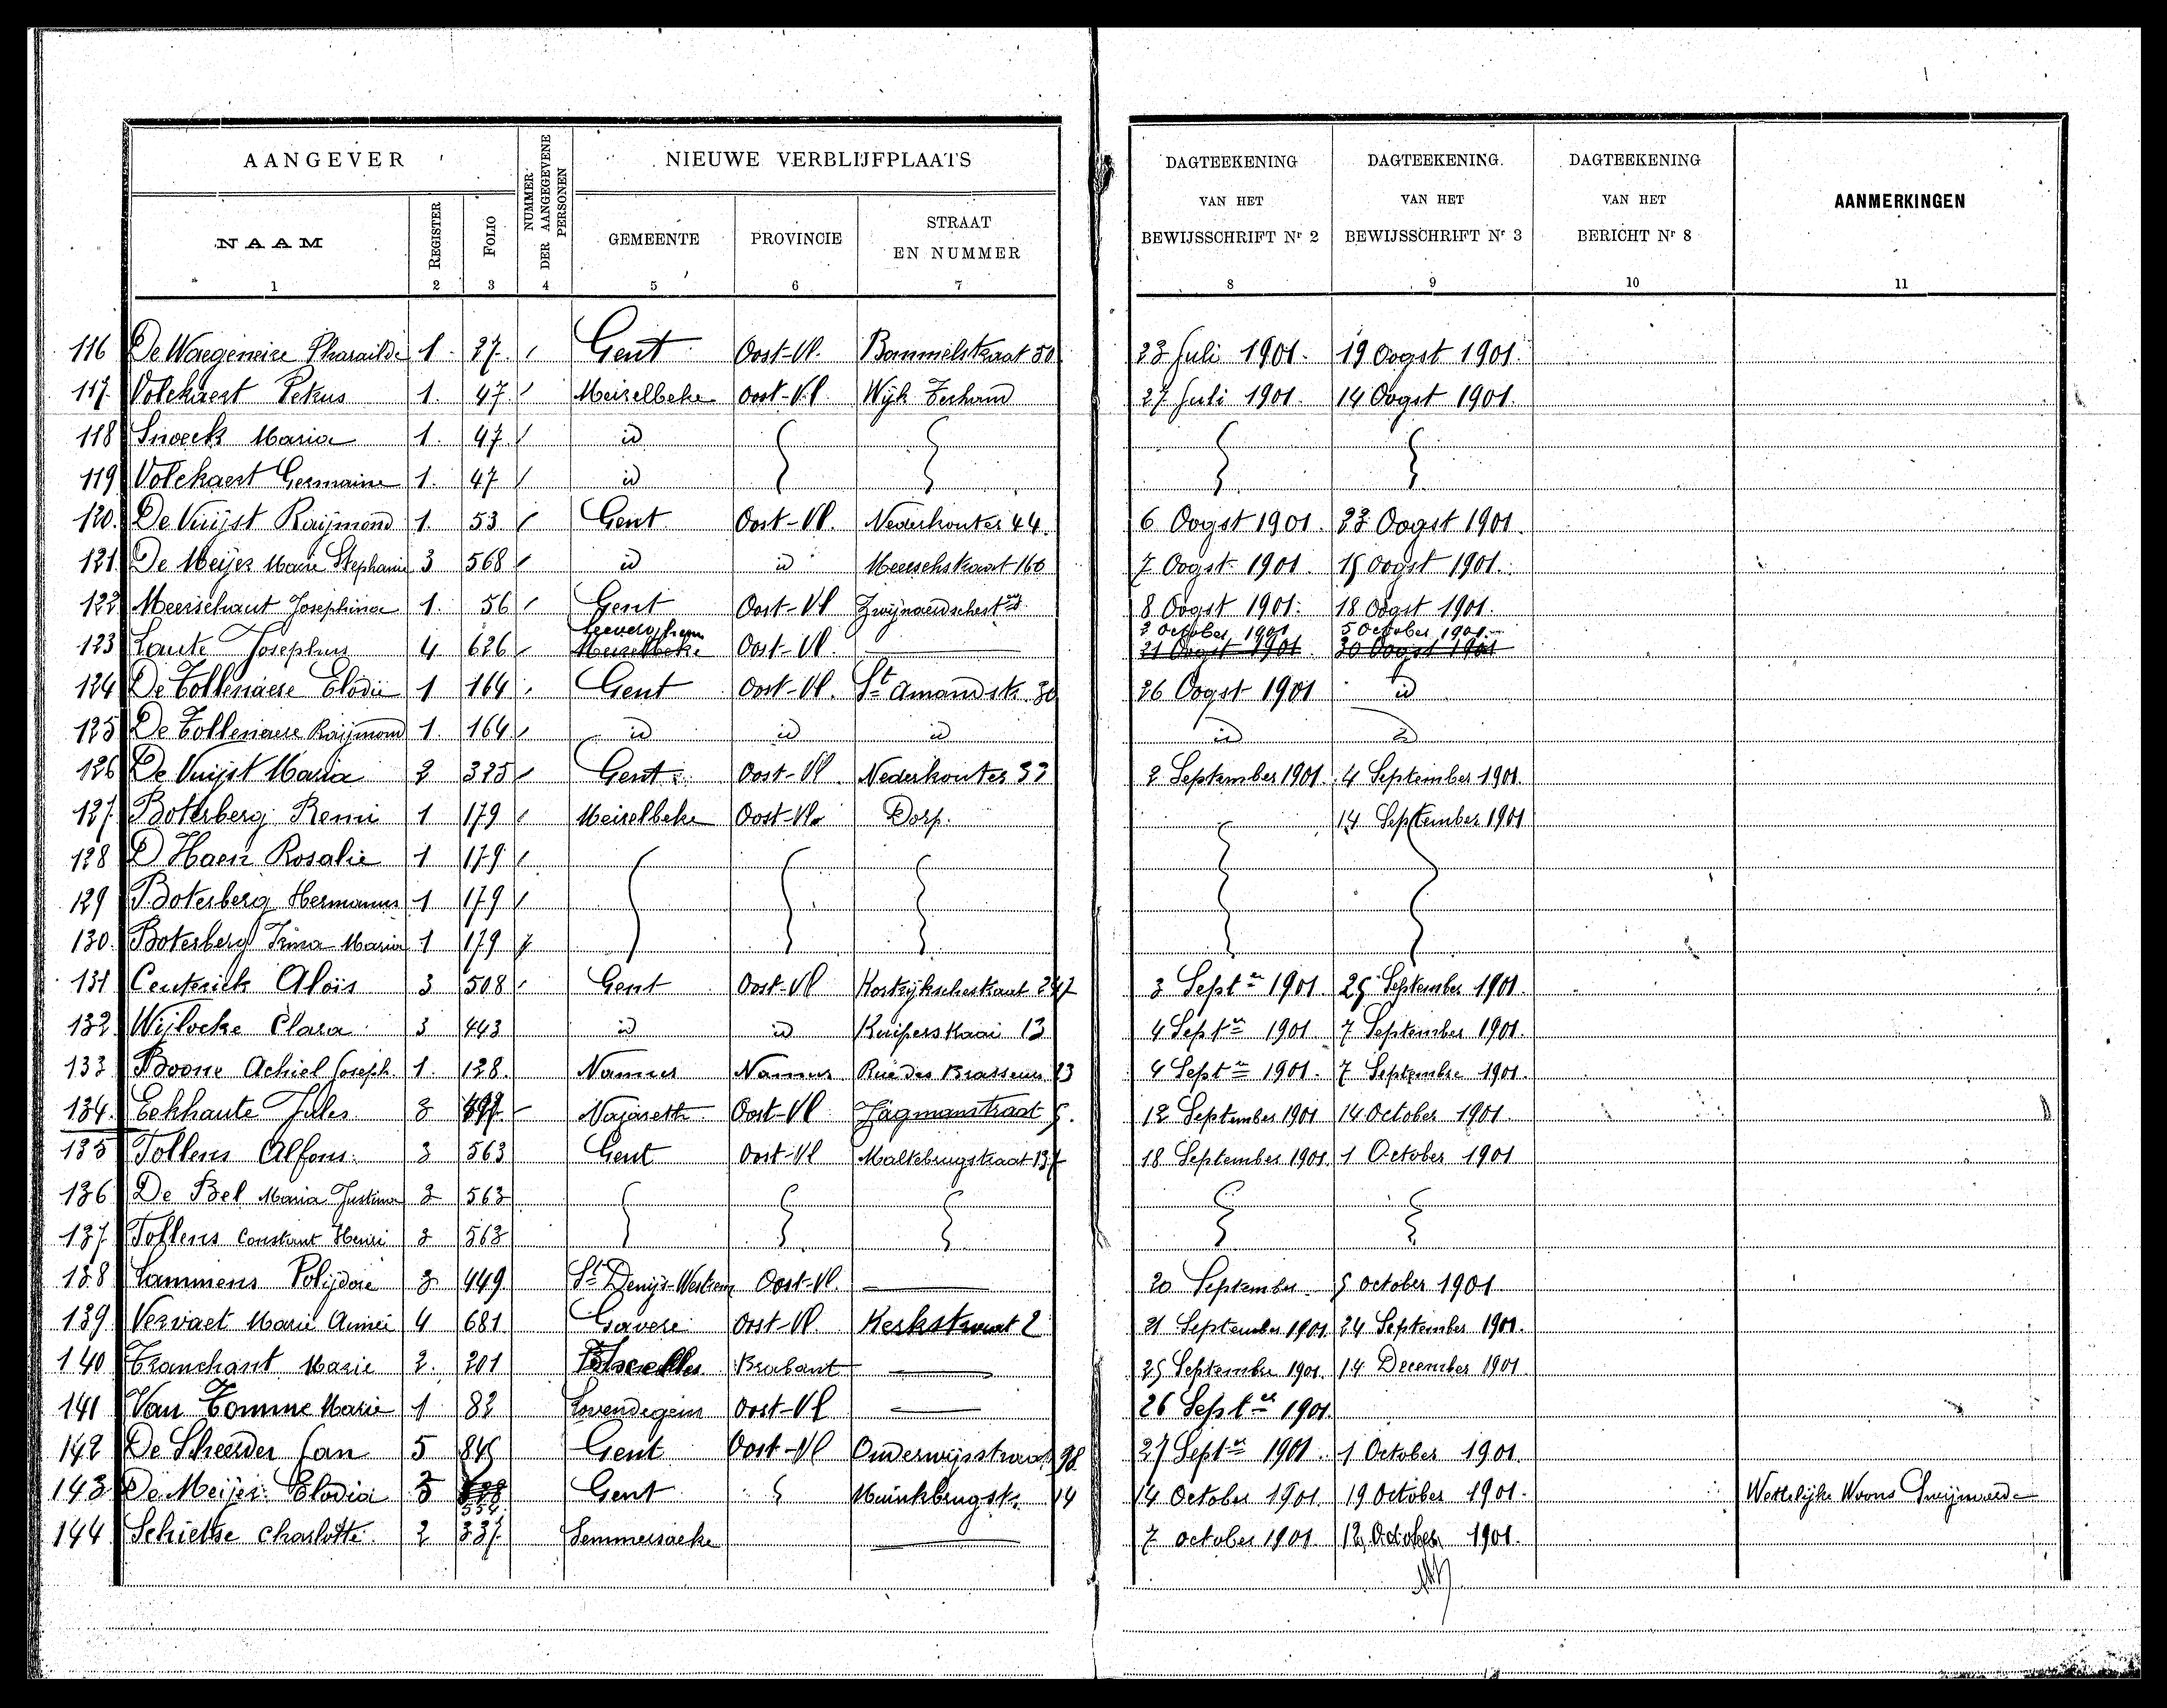 AANGEVER
NUMMER DER AANGEGEVENE PERSONEN
NIEUWE VERBLIJFPLAATS
DAGTEEKENING VAN HET BEWIJSSCHRIFT Nr 2
DAGTEEKENING VAN HET BEWIJSSCHRIFT Nr 3
DAGTEEKENING VAN HET BERICHT Nr 8
AANMERKINGEN
NAAM REGISTER FOLIO GEMEENTE PROVINCIE STRAAT EN NUMMER
1 2 3 4 5 6 7 8 9 10 11
116 De Waegeneire Pharailde 1. 27. / Gent Oost-Vl. Bommelstraat 50 23 Juli 1901. 19 Oogst 1901.
117. Volckaert Petrus 1. 47. / Meirelbeke Oost-Vl. Wijk 27 Juli 1901. 14 Oogst 1901.
118 Snoeck Maria 1. 47. / id
119 Volckaert Germaine 1. 47 / id
120. De Vuijst Raijmond 1. 53 / Gent Oost-Vl. Nederkouter 44. 6 Oogst 1901. 23 Oogst 1901.
121. De Meijer Marie Stephanie 3 568 / id id Meerschstraat 160 7 Oogst 1901. 15 Oogst 1901.
122 Meerschaut Josephina 1. 56 / Gent Oost-Vl Zwijnaerdschestr 8 Oogst 1901. 18 Oogst 1901.
Leeverghem 2 October 1901 5 October 1901.
123 Laute Josephus 4 626 / Meirelbeke Oost-Vl. 21 Oogst 1901 30 Oogst 1901
124 De Tollenaere Elodie 1 164 / Gent Oost-Vl. St Amandstr. 30 26 Oogst 1901 id
125 De Tollenaere Raijmond 1. 164 / id id id id id
126 De Vuijst Maria 2 325 / Gent Oost-Vl. Nederkouter 33 2 September 1901. 4 September 1901.
127. Boterberg Remi 1 179 / Meirelbeke Oost-Vl. Dorp. 14 September 1901
128 D'Haen Rosalie 1 179 /
129 Boterberg Hermanus 1 179 /
130. Boterberg Irma Maria 1 179 /
131 Centerick Aloïs 3 508 / Gent Oost-Vl Kortrijkschestraat 247 3 Septer 1901. 25 September 1901.
132. Wijlocke Clara 3 443 id id Kuiperskaai 13 4 Septer 1901. 7 September 1901.
133 Boone Achiel Joseph. 1. 128. Namur Namur Rue des Brasseurs 23 4 Septer 1901. 7 Septembre 1901.
134. Eekhaute Jules 3 497. / Nazareth Oost-Vl 5. 12 September 1901 14 October 1901.
135 Tollens Alfons. 3 563 Gent Oost-Vl Maltebrugstraat 137 18 September 1901. 1 October 1901
136 De Bel Maria Justina 3 563
137. Tollens Constant Henri 3 563
138 Lammens Polijdore 3 449 St Denijs-Westrem Oost-Vl. 20 September 5 October 1901
139 Vervaet Marie Aimée 4 681 Gavere Oost-Vl. Kerkstraat 2 21 September 1901. 24 September 1901.
140 Tranchant Marie 2. 201 Brabant 25 Septembre 1901. 14 December 1901
141 Van Tomme Marie 1 82 Lovendegem Oost-Vl 26 Septer 1901.
142 De Scheerder Jan 5 845 Gent Oost-Vl Onderwijsstraat 98 27 Septer 1901. 1 October 1901.
143 De Meijer Elodia 3 554 Gent Muinkbrugstr. 14 14 October 1901. 19 October 1901. Wettelijke Woons Zwijnaarde
144 Schietse Charlotte. 2 337. Semmersacke 7 October 1901. 12 October 1901.